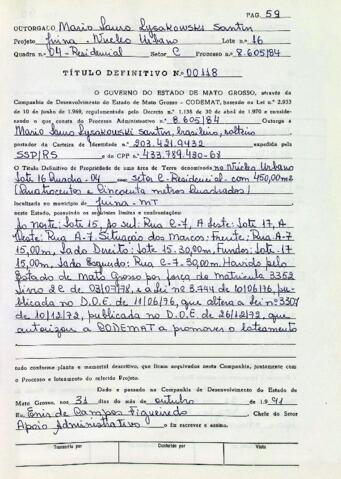 PAG. 59
OUTORGADO Mario Sauro Lysakowski Santin
Projeto Juina - Núcleo Urbano Lote nº 16
Quadra nº 04-Residencial Setor C Processo nº 8.605/84
TÍTULO DEFINITIVO Nº 00118
O GOVERNO DO ESTADO DE MATO GROSSO, através da
Companhia de Desenvolvimento do Estado de Mato Grosso - CODEMAT, baseado na Lei nº 2.933
de 10 de junho de 1969, regulamentado pelo Decreto nº 1.138 de 30 de abril de 1970 e considerando
o que consta do Processo Administrativo nº 8.605/84 Outorga a
Mario Sauro Lysakowski Santin, brasileiro, solteiro
portador da Carteira de Identidade nº 203.421.9432 expedida pela
SSP/RS e do CPF nº 433.789.430-68
o Título Definitivo de Propriedade de uma área de Terra denominada no Núcleo Urbano
Lote 16 Quadra-04 - Setor C-Residencial com 450,00m2
(Quatrocentos e Cincoenta metros Quadrados)
localizada no município de Juina-MT
neste Estado, possuindo os seguintes limites e confrontações:
Ao Norte: Lote 15, Ao Sul: Rua C-7, A Leste: Lote 17, A
Oeste: Rua A-7 Situação dos Marcos: Frente: Rua A-7
15,00m, Lado Direito: Lote 15. 30,00m, Fundos: Lote 17
15,00m, Lado Esquerdo: Rua C-7. 30,00m. Havido pelo
Estado de Mato Grosso por força de Matricula 3352
Livro 2C de 03/07/78, e a Lei nº 3.744 de 10/06/76, pu-
blicada no D.O.E. de 11/06/76, que altera a Lei nº 3307
de 10/12/72, publicada no D.O.E. de 26/12/72, que
autorizou a CODEMAT a promover o loteamento
tudo conforme planta e memorial descritivo, que ficam arquivados nesta Companhia, juntamente com
o Processo e loteamento do referido Projeto.
Dado e passado na Companhia de Desenvolvimento do Estado de
Mato Grosso, aos 31 dias do mês de outubro de 1.991
Eu Enis de Campos Figueiredo Chefe do Setor
Apoio Administrativo o fiz escrever e assino.
Transcrito por Conferido por Visto